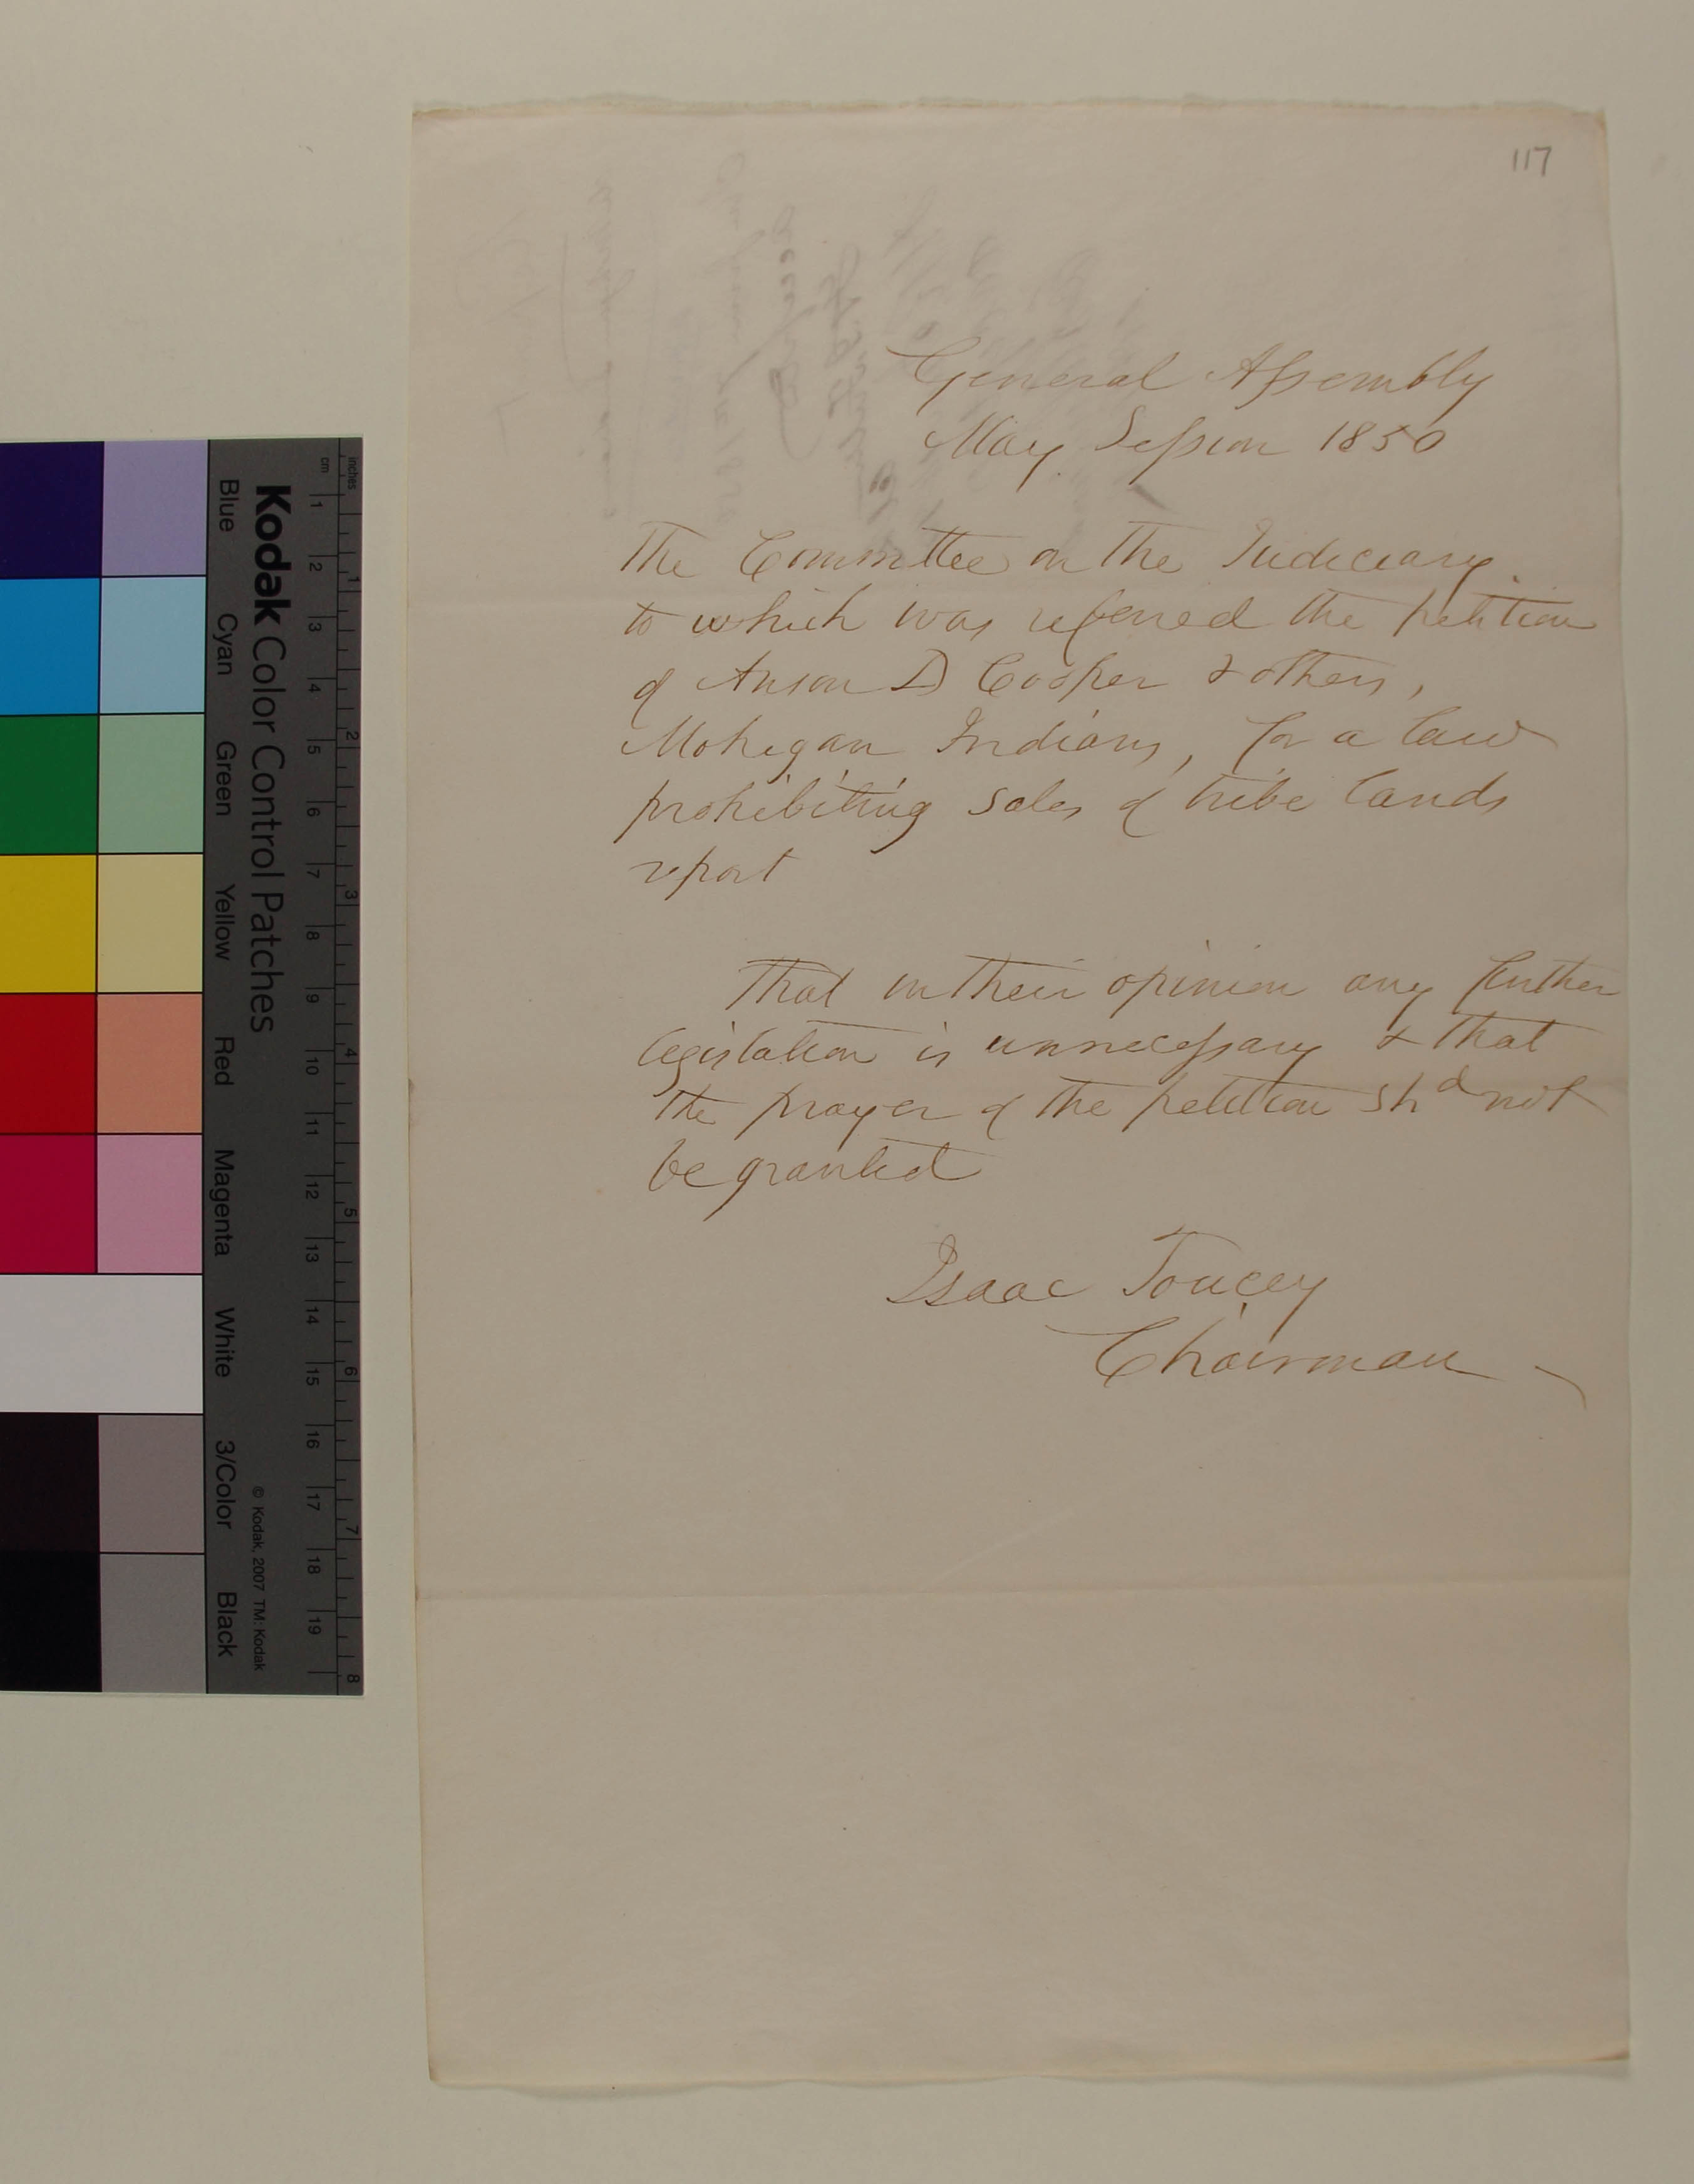 117
General Assembly
May Session 1850
The Committee on the Judiciary
to which was referred the petition
of Anson D Cooper & others,
Mohegan Indians, for a law
prohibiting sales of tribe lands
report
That in their opinion any further
legislation is unnecessary & that
the prayer of the petition shd not
be granted
Isaac Toucey
Chairman
Kodak Color Control Patches
Blue Cyan Green Yellow Red Magenta White 3/Color Black
© Kodak, 2007 TM: Kodak
inches 1 2 3 4 5 6 7 8
cm 1 2 3 4 5 6 7 8 9 10 11 12 13 14 15 16 17 18 19